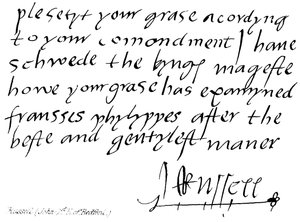 plesetyt your grase acordyng
to your comondment I haue
schwede the kyngs mageste
howe your grase has examyned
fransses phylyppes after the
beste and gentylest maner
J Russell
Russell (John 1st E. of Bedford)